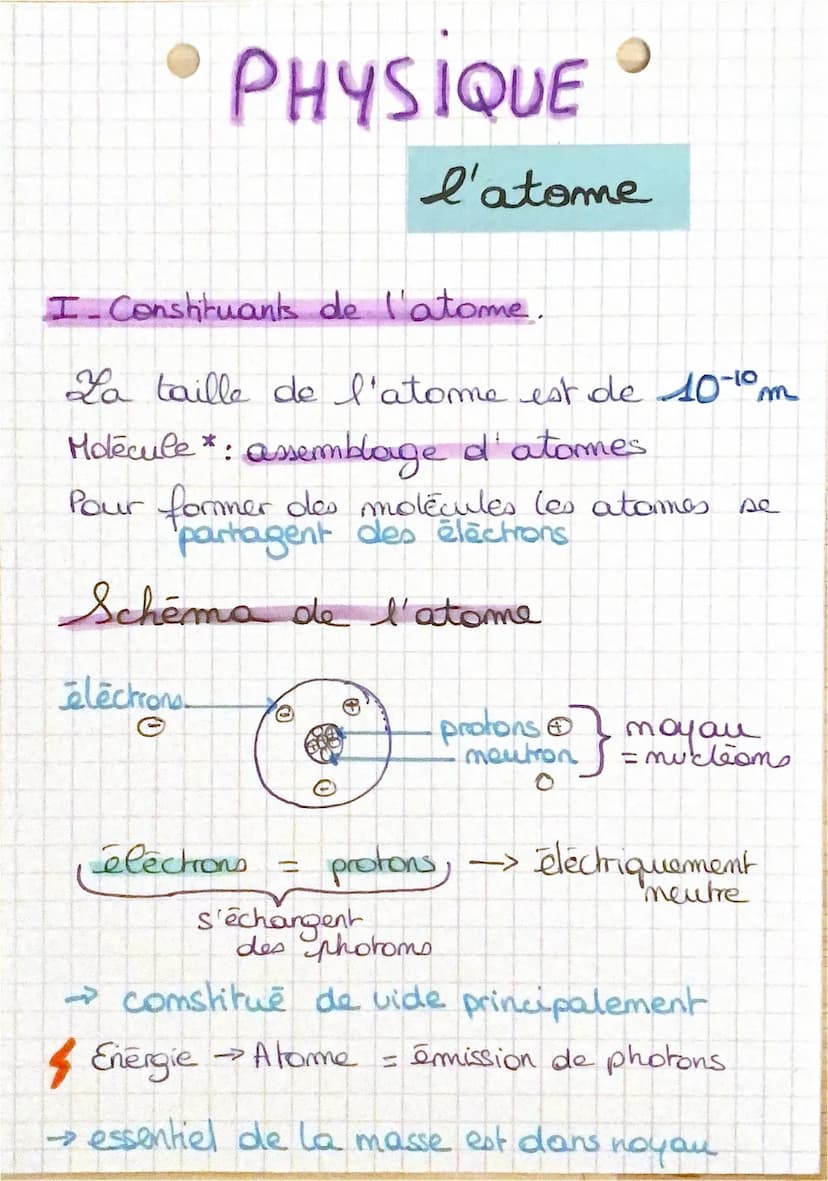 PHYSIQUE
l'atome
I - Constituants de l'atome.
La taille de l'atome est de 10⁻¹⁰ m
Molécule * : assemblage d'atomes
Pour former des molécules les atomes se
partagent des éléctrons
Schéma de l'atome
éléctrons
⊖
⊖
⊕
⊖
protons ⊕
neutron
O
} noyau
= nucléons
éléctrons = protons → éléctriquement
neutre
s'échangent
des photons
→ constitué de vide principalement
Énérgie → Atome = émission de photons
→ essentiel de la masse est dans noyau